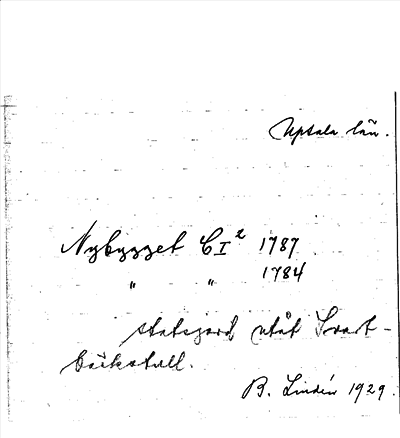 Upsala län.
Nybygget CI² 1787
" " 1784
statsgård utåt Svart-
bäckstull.
B. Lindén 1929.